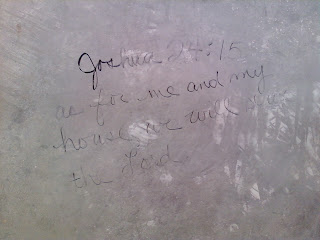 Joshua 24:15
as for me and my
house we will
the Lord